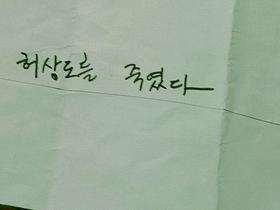 허상도를 죽였다